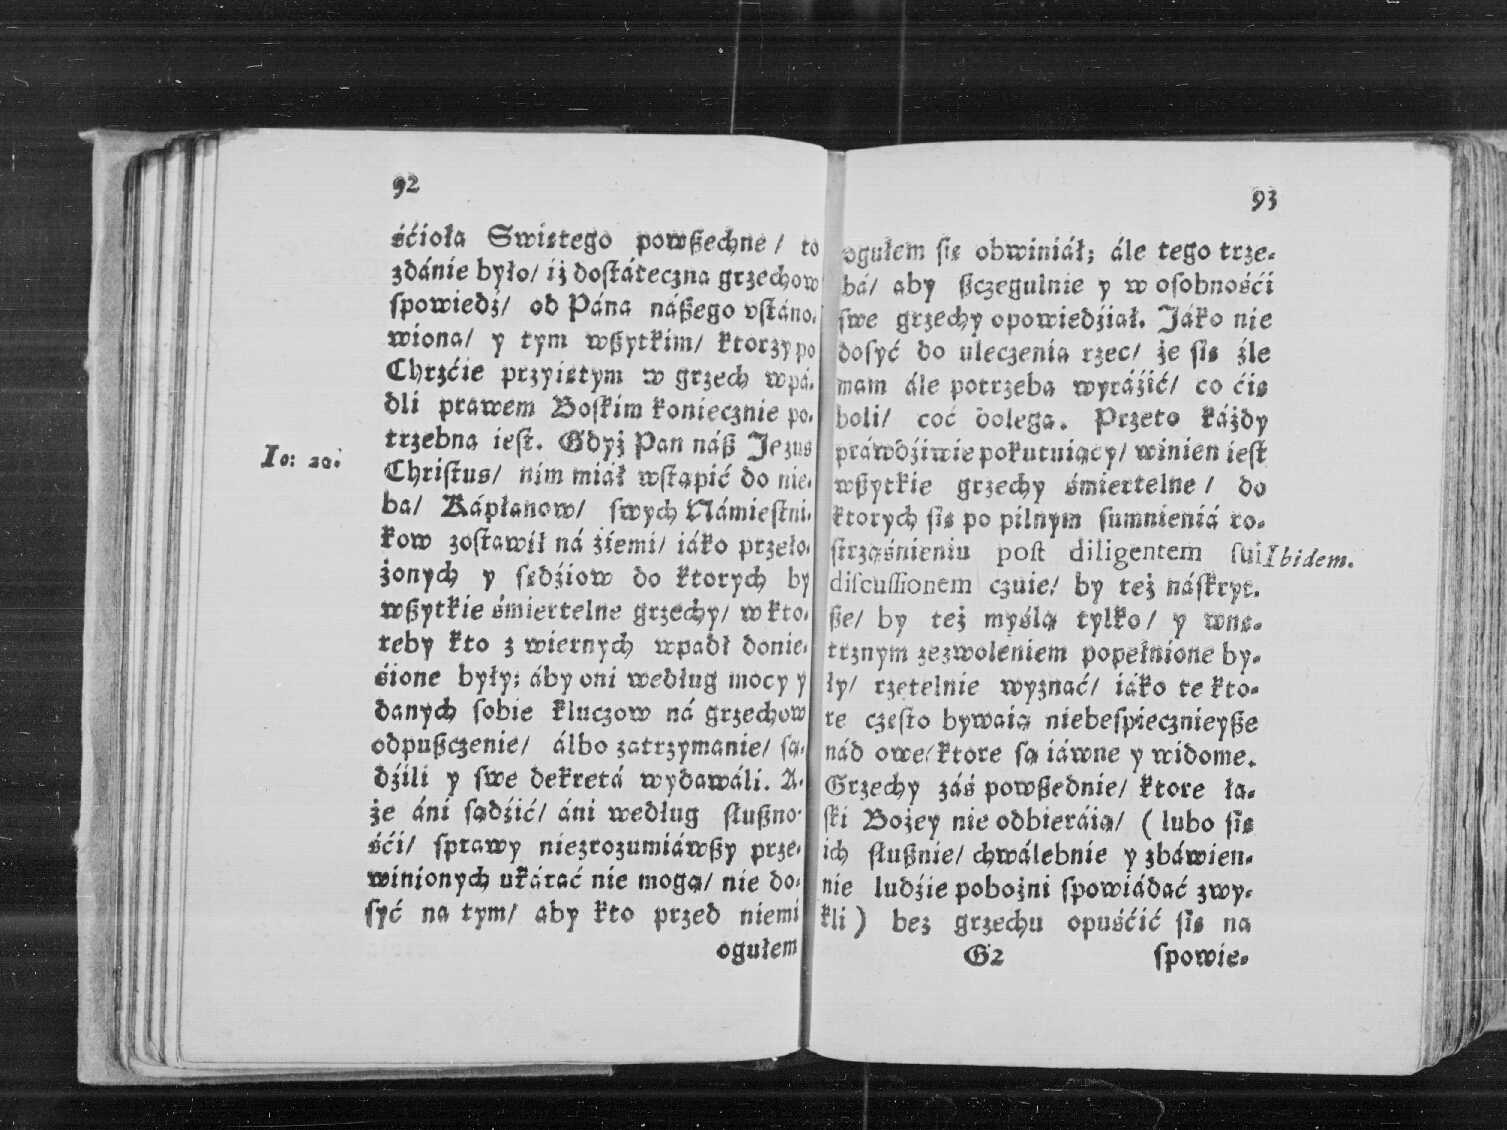 92
śćioła Swiętego powßechne / to
zdánie było/ iż dostáteczna grzechow
spowiedź/ od Pána náßego vstáno-
wiona/ y tym wßytkim/ ktorzy po
Chrzćie przyiętym w grzech wpá-
dli prawem Boskim koniecznie po-
trzebna iest. Gdyż Pan náß Jezus
Io: 20.
Christus/ nim miał wstąpić do nie-
ba/ Kápłanow/ swych Námiestni-
kow zostawił ná źiemi/ iáko przeło-
żonych y sędźiow do ktorych by
wßytkie śmiertelne grzechy/ w kto-
reby kto z wiernych wpadł donie-
śione były; áby oni według mocy y
danych sobie kluczow ná grzechow
odpußczenie/ álbo zatrzymanie/ są-
dźili y swe dekretá wydawáli. A-
że áni sądźić/ áni według slußno-
śći/ sprawy niezrozumiáwßy prze-
winionych ukárać nie mogą/ nie do-
syć na tym/ aby kto przed niemi
ogułem
93
ogułem się obwiniáł; ále tego trze-
bá/ aby ßczegulnie y w osobnośći
swe grzechy opowiedźiał. Jáko nie
dosyć do uleczenia rzec/ że się źle
mam ále potrzeba wyráźić/ co ćię
boli/ coć dolega. Przeto káżdy
práwdźiwie pokutuiący/ winien iest
wßytkie grzechy śmiertelne / do
ktorych się po pilnym sumnieniá ro-
strząśnieniu post diligentem sui
Ibidem.
discussionem czuie/ by też náskryt-
ße/ by też myślą tylko/ y wnę-
trznym zezwoleniem popełnione by-
ły/ rzetelnie wyznać/ iáko te kto-
re często bywaią niebespiecznieyße
nád owe/ ktore są iáwne y widome.
Grzechy záś powßednie/ ktore ła-
ski Bożey nie odbieráią/ ( lubo się
ich slußnie/ chwálebnie y zbáwien-
nie ludźie pobożni spowiádać zwy-
kli ) bez grzechu opuśćić się na
G2
spowie-